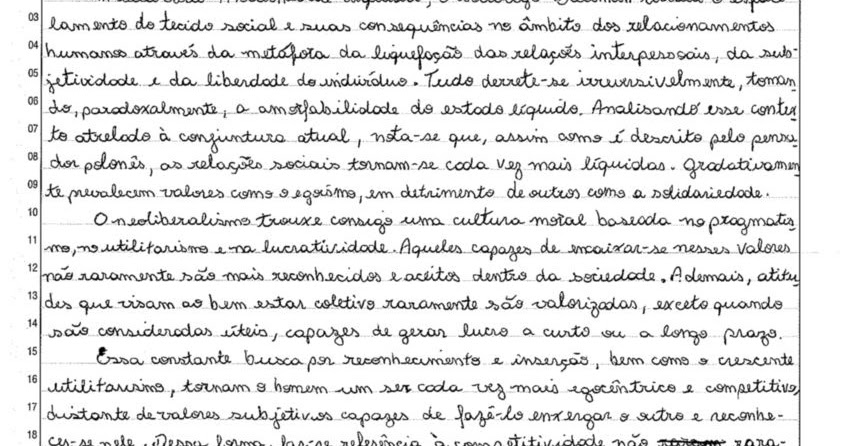 03 lamento do tecido social e suas consequências no âmbito dos relacionamentos
04 humanos através da metáfora da liquefação das relações interpessoais, da sub-
05 jetividade e da liberdade do indivíduo. Tudo derrete-se irreversivelmente, toman
06 do, paradoxalmente, a amorfabilidade do estado líquido. Analisando esse contex
07 to atrelado à conjuntura atual, nota-se que, assim como é descrito pelo pensa
08 dor polonês, as relações sociais tornam-se cada vez mais líquidas. Gradativamen
09 te prevalecem valores como o egoísmo, em detrimento de outros como a solidariedade.
10 O neoliberalismo trouxe consigo uma cultura moral baseada no pragmatis
11 mo, no utilitarismo e na lucratividade. Aqueles capazes de encaixar-se nesses valores
12 não raramente são mais reconhecidos e aceitos dentro da sociedade. Ademais, atitu
13 des que visam ao bem estar coletivo raramente são valorizadas, exceto quando
14 são consideradas úteis, capazes de gerar lucro a curto ou a longo prazo.
15 Essa constante busca por reconhecimento e inserção, bem como o crescente
16 utilitarismo, tornam o homem um ser cada vez mais egocêntrico e competitivo,
17 distante de valores subjetivos capazes de fazê-lo enxergar o outro e reconhe-
18 cer-se nele. Dessa forma, faz-se referência à competitividade não rara-